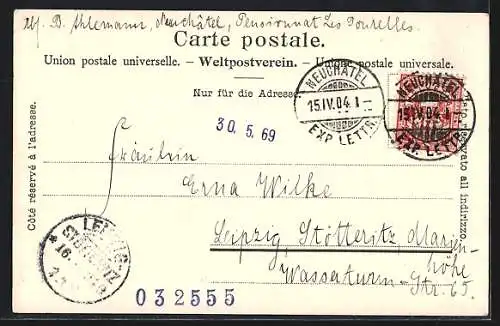 Abs. B. Ahlemann, Neuchâtel, Pensionnat Les Tourelles.
Carte postale.
Union postale universelle. – Weltpostverein. – Unione postale universale.
Nur für die Adresse
NEUCHATEL
15.IV.04. I
EXP. LETTR.
NEUCHATEL
15.IV.04. I
EXP. LETTR.
30.5.69
Côté réservé à l'adresse.
Lato riservato all indirizzo.
Fräulein
Erna Wilke
Leipzig, Stötteritz Marien-
höhe
Wasserturm-Str. 65.
LEIPZIG-
STÖTTERITZ
* 16.
032555